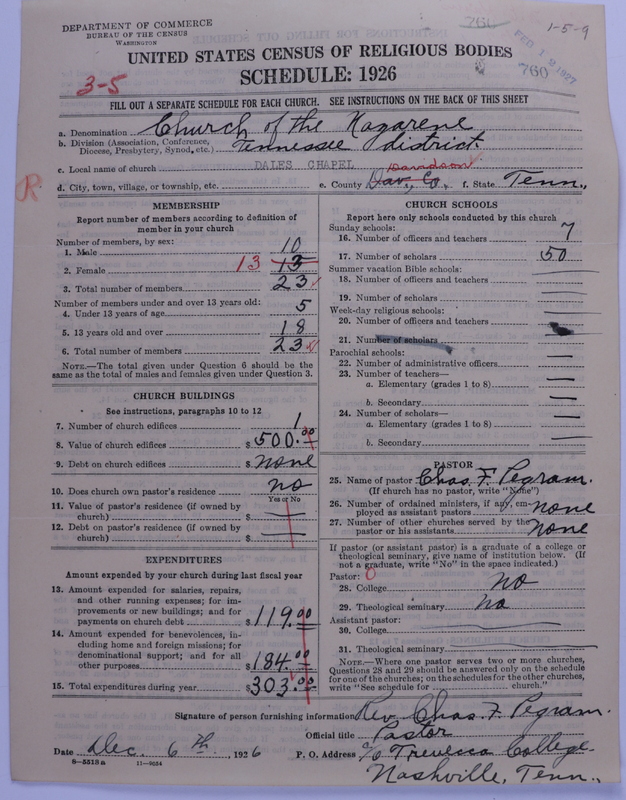 DEPARTMENT OF COMMERCE
BUREAU OF THE CENSUS
WASHINGTON
760
1-5-9
FEB 12 1927
760
UNITED STATES CENSUS OF RELIGIOUS BODIES
SCHEDULE: 1926
3-5
FILL OUT A SEPARATE SCHEDULE FOR EACH CHURCH. SEE INSTRUCTIONS ON THE BACK OF THIS SHEET
a. Denomination Church of the Nazarene
b. Division (Association, Conference, Diocese, Presbytery, Synod, etc.) Tennessee district.
c. Local name of church DALES CHAPEL
Davidson
R
d. City, town, village, or township, etc. e. County Dav. Co., f. State Tenn.,
MEMBERSHIP
Report number of members according to definition of
member in your church
Number of members, by sex:
1. Male 10
2. Female 13 13
3. Total number of members 23
Number of members under and over 13 years old:
4. Under 13 years of age 5
5. 13 years old and over 18
6. Total number of members 23
NOTE.—The total given under Question 6 should be
same as the total of males and females given under Question 3.
CHURCH BUILDINGS
See instructions, paragraphs 10 to 12
7. Number of church edifices 1
8. Value of church edifices $ 500.00
9. Debt on church edifices $ none
10. Does church own pastor's residence no
Yes or No
11. Value of pastor's residence (if owned by
church) $ —
12. Debt on pastor's residence (if owned by
church) $ —
EXPENDITURES
Amount expended by your church during last fiscal year
13. Amount expended for salaries, repairs,
and other running expenses; for im-
provements or new buildings; and for
payments on church debt $ 119.00
14. Amount expended for benevolences, in-
cluding home and foreign missions; for
denominational support; and for all
other purposes $ 184.00
15. Total expenditures during year $ 303.00
CHURCH SCHOOLS
Report here only schools conducted by this church
Sunday schools:
16. Number of officers and teachers 7
17. Number of scholars 50
Summer vacation Bible schools:
18. Number of officers and teachers —
19. Number of scholars —
Week-day religious schools:
20. Number of officers and teachers
21. Number of scholars —
Parochial schools:
22. Number of administrative officers —
23. Number of teachers—
a. Elementary (grades 1 to 8) —
b. Secondary —
24. Number of scholars—
a. Elementary (grades 1 to 8) —
b. Secondary —
PASTOR
25. Name of pastor Chas. F. Pegram.
(If church has no pastor, write "None")
26. Number of ordained ministers, if any, em-
ployed as assistant pastors none
27. Number of other churches served by the
pastor or his assistants none
If pastor (or assistant pastor) is a graduate of a college or
theological seminary, give name of institution below. (If
not a graduate, write "No" in the space indicated.)
Pastor: 0
28. College no
29. Theological seminary no
Assistant pastor:
30. College —
31. Theological seminary —
NOTE.—Where one pastor serves two or more churches,
Questions 28 and 29 should be answered only on the schedule
for one of the churches; on the schedules for the other churches,
write "See schedule for church."
Signature of person furnishing information Rev. Chas. F. Pegram.
Official title Pastor
Date Dec. 6th, 1926 P. O. Address c/o Trevecca College.
8—5513a 11—9034
Nashville, Tenn.,